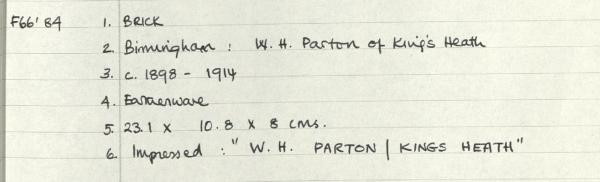 F66'84 1. BRICK
2. Birmingham : W. H. Parton of King's Heath
3. c. 1898 - 1914
4. Earthenware
5. 23.1 x 10.8 x 8 cms.
6. Impressed : "W. H. PARTON | KINGS HEATH"